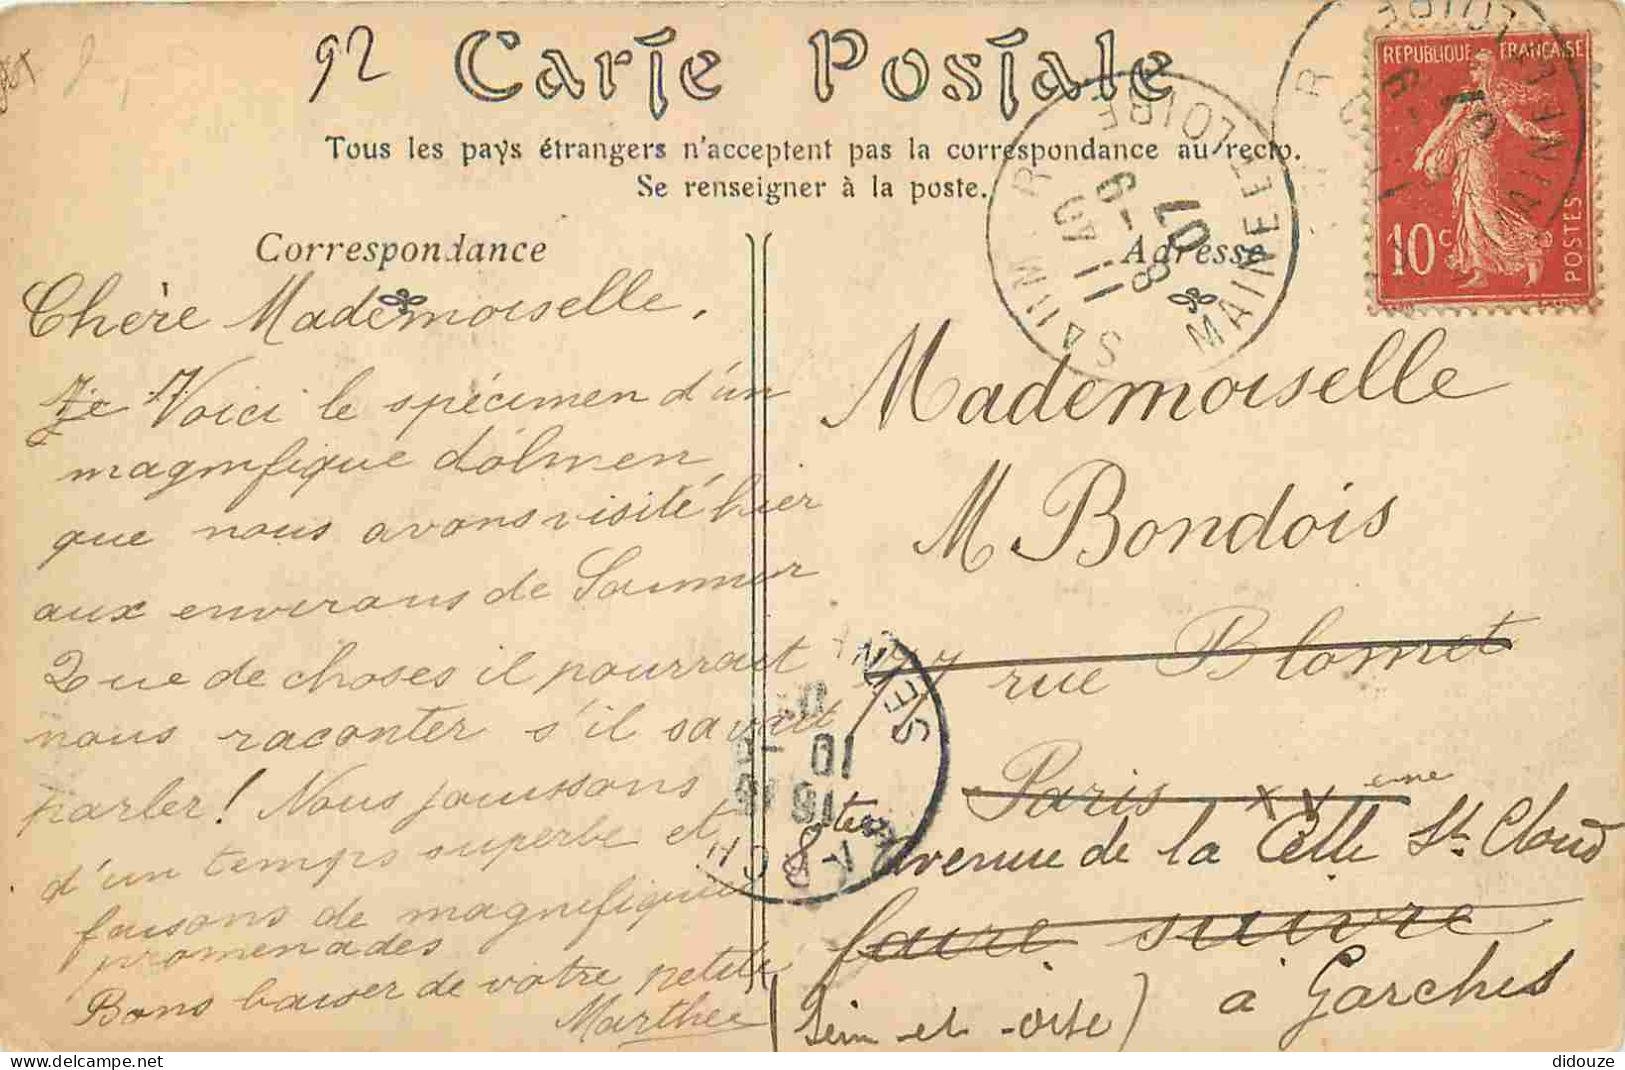 92
Carte Postale
Tous les pays étrangers n'acceptent pas la correspondance au recto.
Se renseigner à la poste.
REPUBLIQUE FRANÇAISE
10c
POSTES
SAUMUR
MAINE ET LOIRE
11 40
8 -9
07
Correspondance
Chère Mademoiselle.
Je Voici le spécimen d'un
magnifique dolmen
que nous avons visité hier
aux environs de Saumur
Que de choses il pourrait
nous raconter s'il savait
parler! Nous jouissons
d'un temps superbe et
faisons de magnifiques
promenades
Bons baiser de votre petite
Marthe
Adresse
Mademoiselle
M Bondois
rue Blomet
Paris XV eme
8 ter avenue de la Celle St. Cloud
faire suivre
à Garches
(Seine-et-oise)
GARCHES
18
10 -9
07
didouze